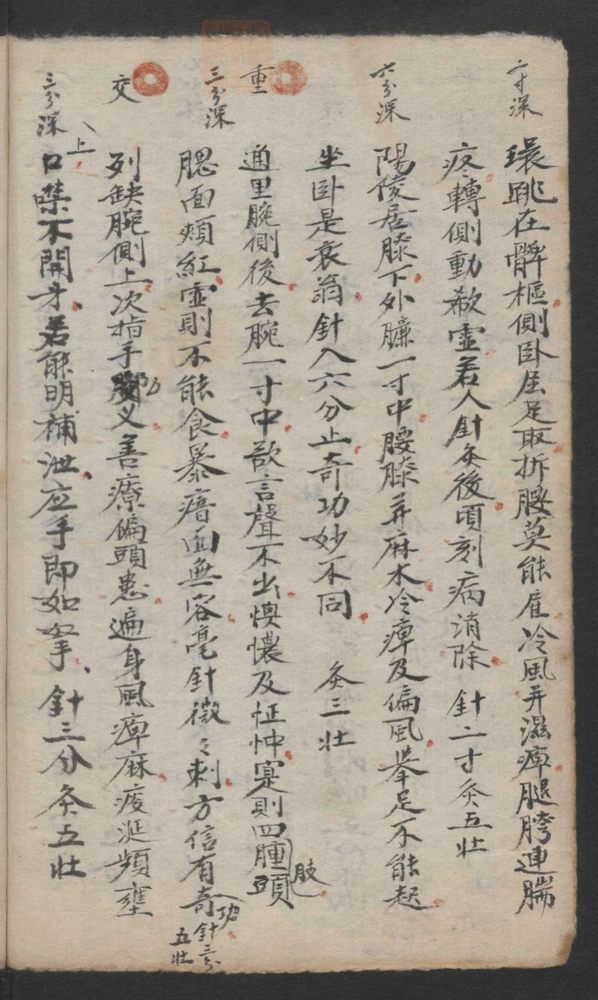 二寸深 環跳在髀樞側卧屈足取折腰莫能雇冷風并滋痺腿胯連腨
疼轉側動欷虛若人針灸後頃刻病消除 針二寸灸五壯
六分深 陽陵居膝下外臁一寸中腰膝并麻木冷痺及偏風舉足不能起
坐卧是衰翁針入六分止奇功妙不同 灸三壯
重 通里腕側後去腕一寸中欲言聲不出懊憹及怔忡寔則四肢腫頭
三分深 腮面頰紅虛則不能食暴瘖面無容毫針微々刺方信有奇功針三分五壯
交 列缺腕側上次指手乂善療偏頭患遍身風痺麻痰涎頻壅
三分深 上口噤不開牙若能明補泄应手即如拏 針三分灸五壯